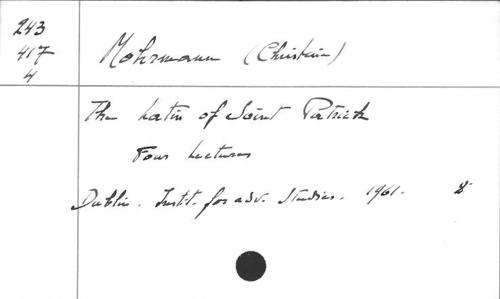 243
417
4
Mohrmann (Christine)
The Latin of Saint Patrick
Four Lectures
Dublin. Instit. for adv. Studies. 1961. 8°